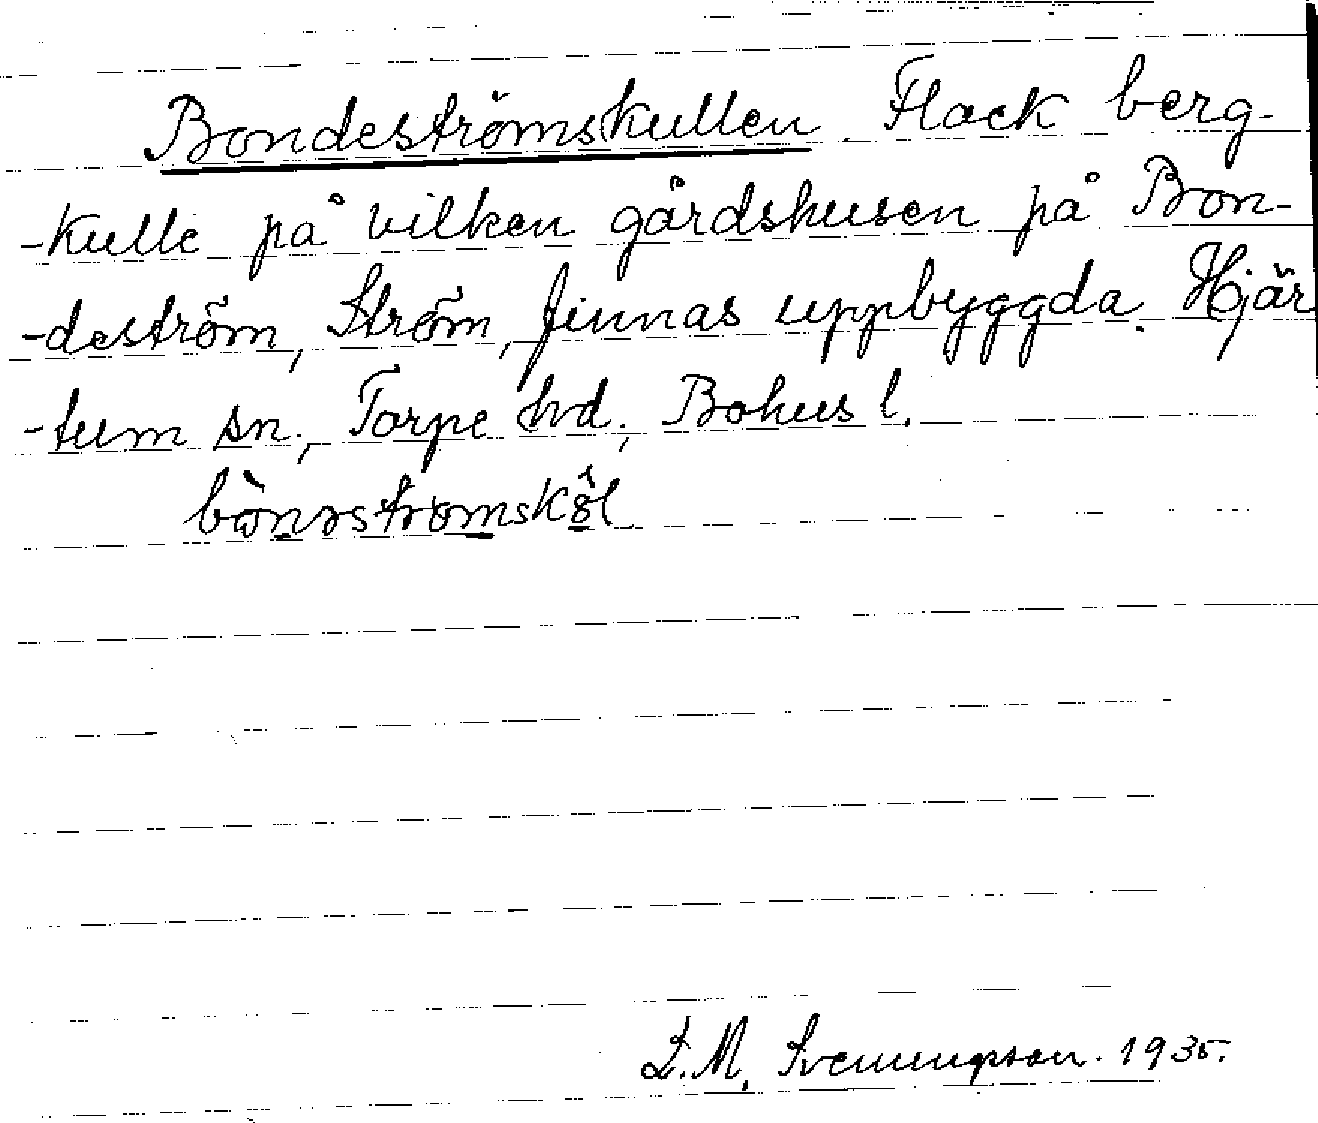 Bondeströmskullen. Flack berg-
-kulle på vilken gårdshusen på Bon-
-deström, Ström, finnas uppbyggda. Hjär
-tum sn., Torpe hd., Bohus l.
L.M. Svenungson. 1935.